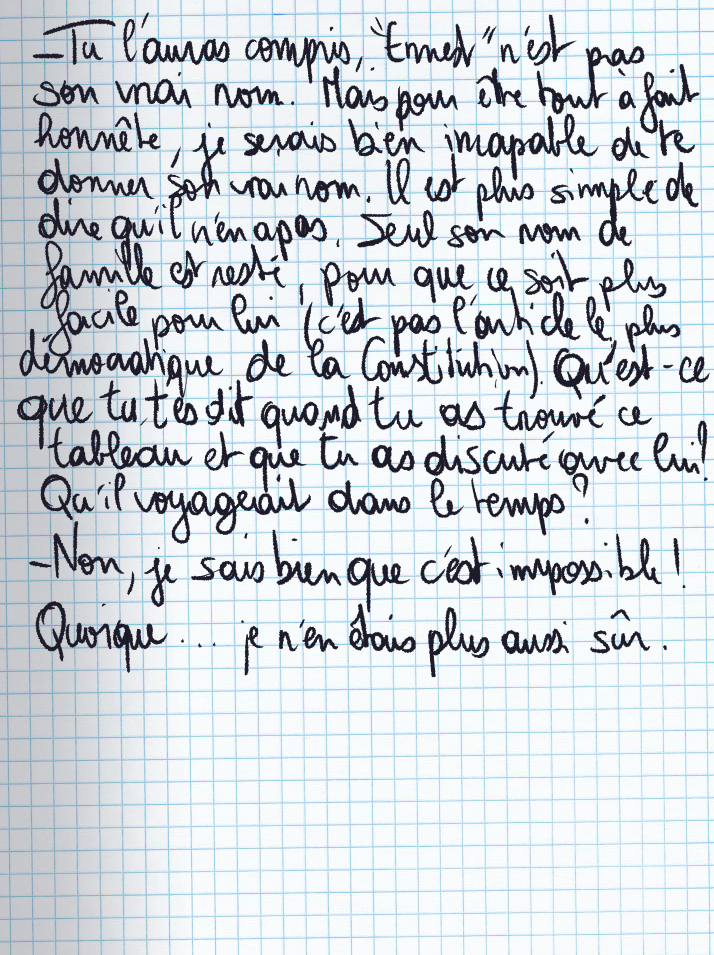 -Tu l'auras compris, "Ernest" n'est pas
son vrai nom. Mais pour être tout à fait
honnête, je serais bien incapable de te
donner son vrai nom. Il est plus simple de
dire qu'il n'en a pas. Seul son nom de
famille est resté, pour que ce soit plus
facile pour lui (c'est pas l'article le plus
démocratique de la Constitution). Qu'est-ce
que tu t'es dit quand tu as trouvé ce
tableau et que tu as discuté avec lui?
Qu'il voyageait dans le temps?
-Non, je sais bien que c'est impossible!
Quoique... je n'en étais plus aussi sûr.